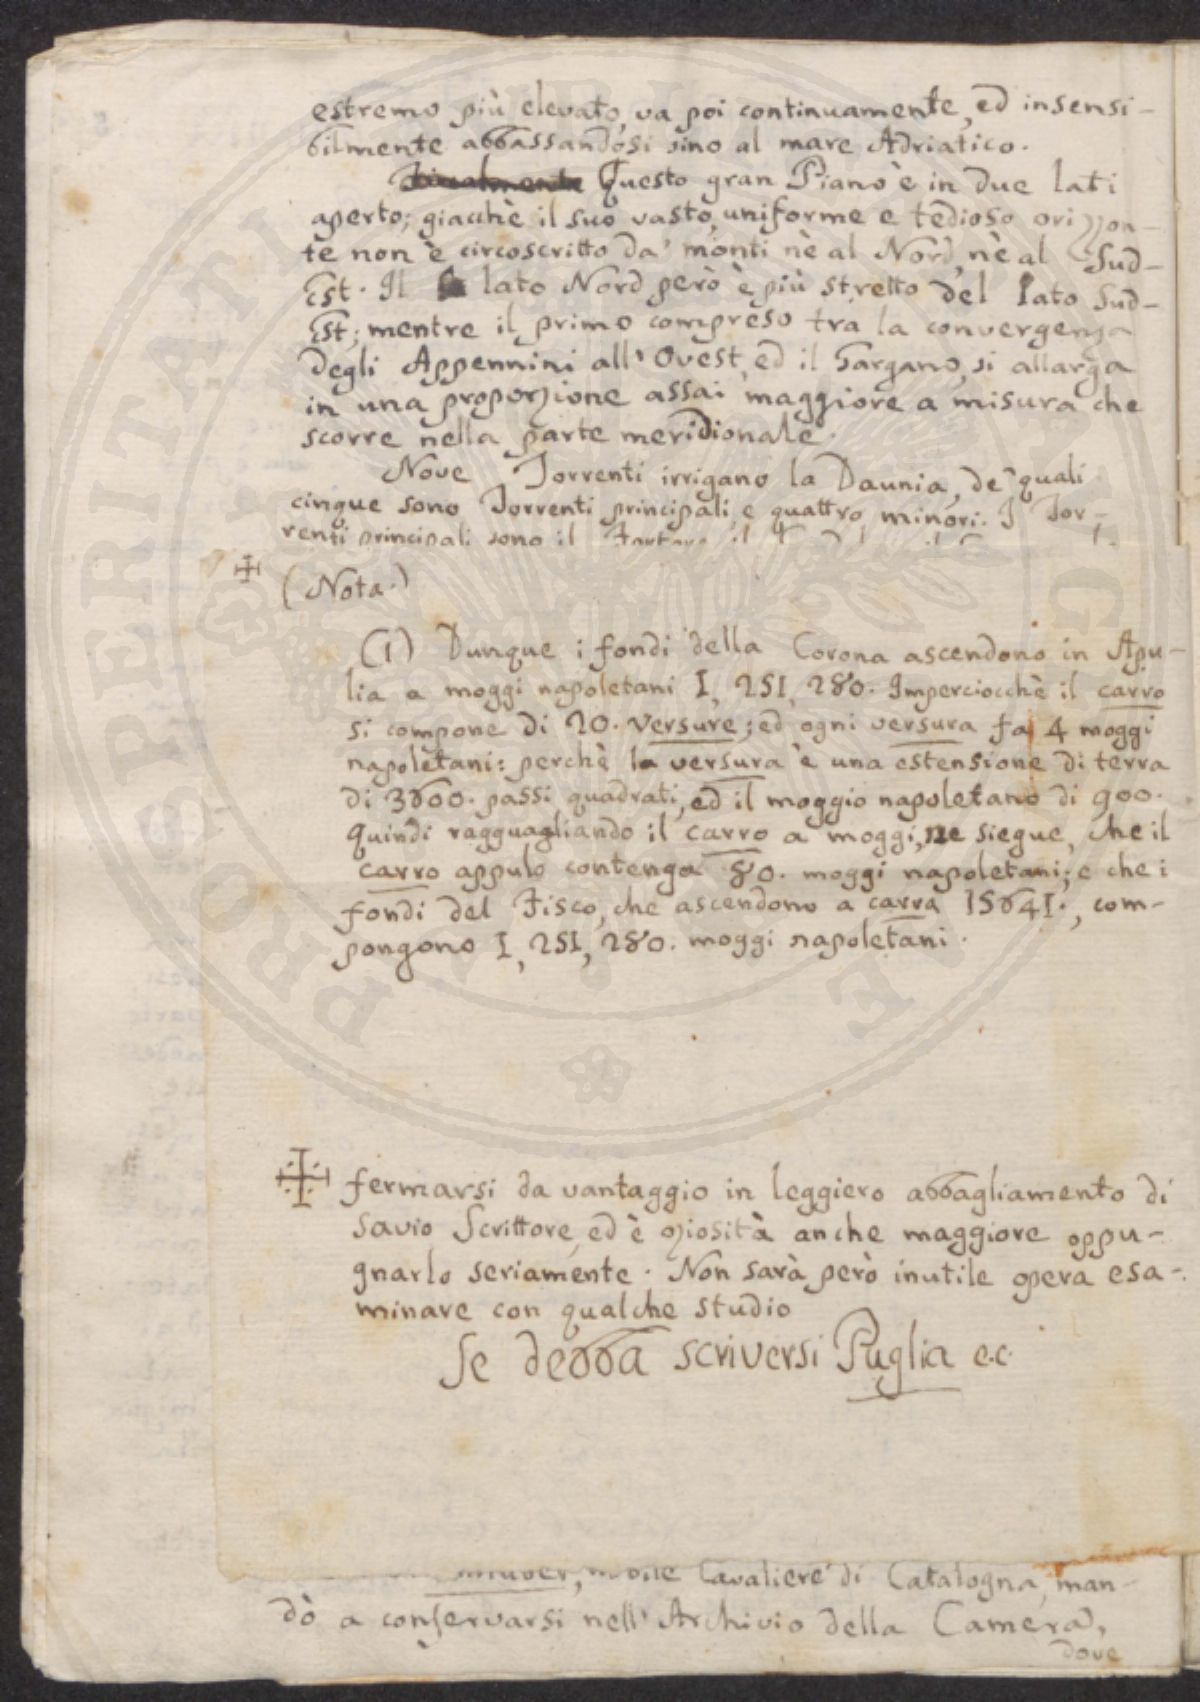 estremo più elevato, va poi continuamente, ed insensi-
bilmente abbassandosi sino al mare Adriatico.
Questo gran Piano è in due lati
aperto; giacchè il suo vasto, uniforme e tedioso orizzon-
te non è circoscritto da' monti nè al Nord, nè al Sud-
Est. Il lato Nord però è più stretto del lato Sud-
Est; mentre il primo compreso tra la convergenza
degli Appennini all'Ovest, ed il Gargano, si allarga
in una proporzione assai maggiore a misura che
scorre nella parte meridionale.
Nove Torrenti irrigano la Daunia, de' quali
cinque sono Torrenti principali, e quattro minori. I Tor-
renti principali sono il
(Nota.)
(1) Dunque i fondi della Corona ascendono in Apu-
lia a moggi napoletani 1, 251, 280. Imperciocchè il carro
si compone di 20. versure; ed ogni versura fa 4 moggi
napoletani: perchè la versura è una estensione di terra
di 3600. passi quadrati, ed il moggio napoletano di 900.
Quindi ragguagliando il carro a moggi, ne siegue, che il
carro appulo contenga 80. moggi napoletani; e che i
fondi del Fisco, che ascendono a carra 15641., com-
pongono 1, 251, 280. moggi napoletani.
fermarsi da vantaggio in leggiero abbagliamento di
savio Scrittore, ed è oziosità anche maggiore oppu-
gnarlo seriamente. Non sarà però inutile opera esa-
minare con qualche studio
Se debba scriversi Puglia e.c.
Cavaliere di Catalogna, man-
dò a conservarsi nell'Archivio della Camera,
dove
PROSPERITATI